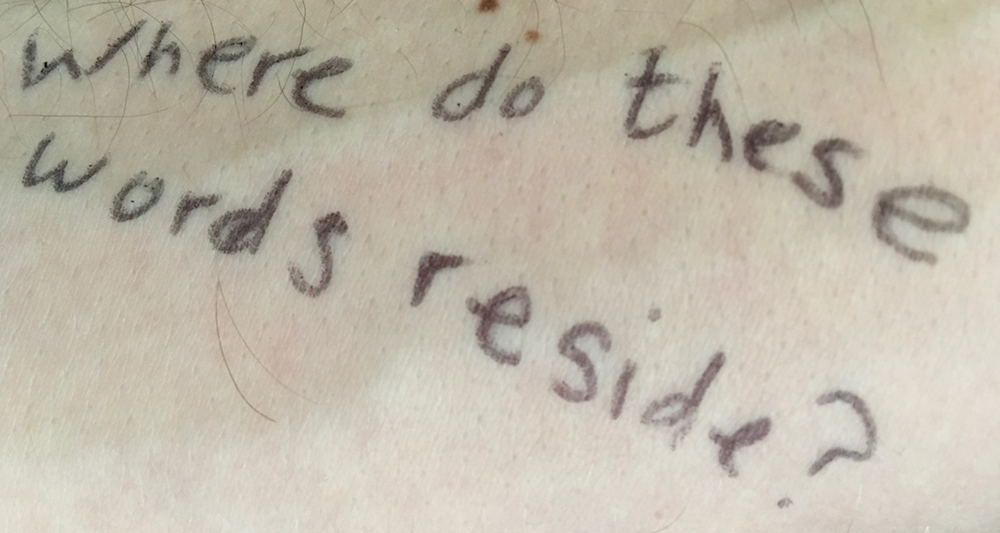 where do these
words reside?